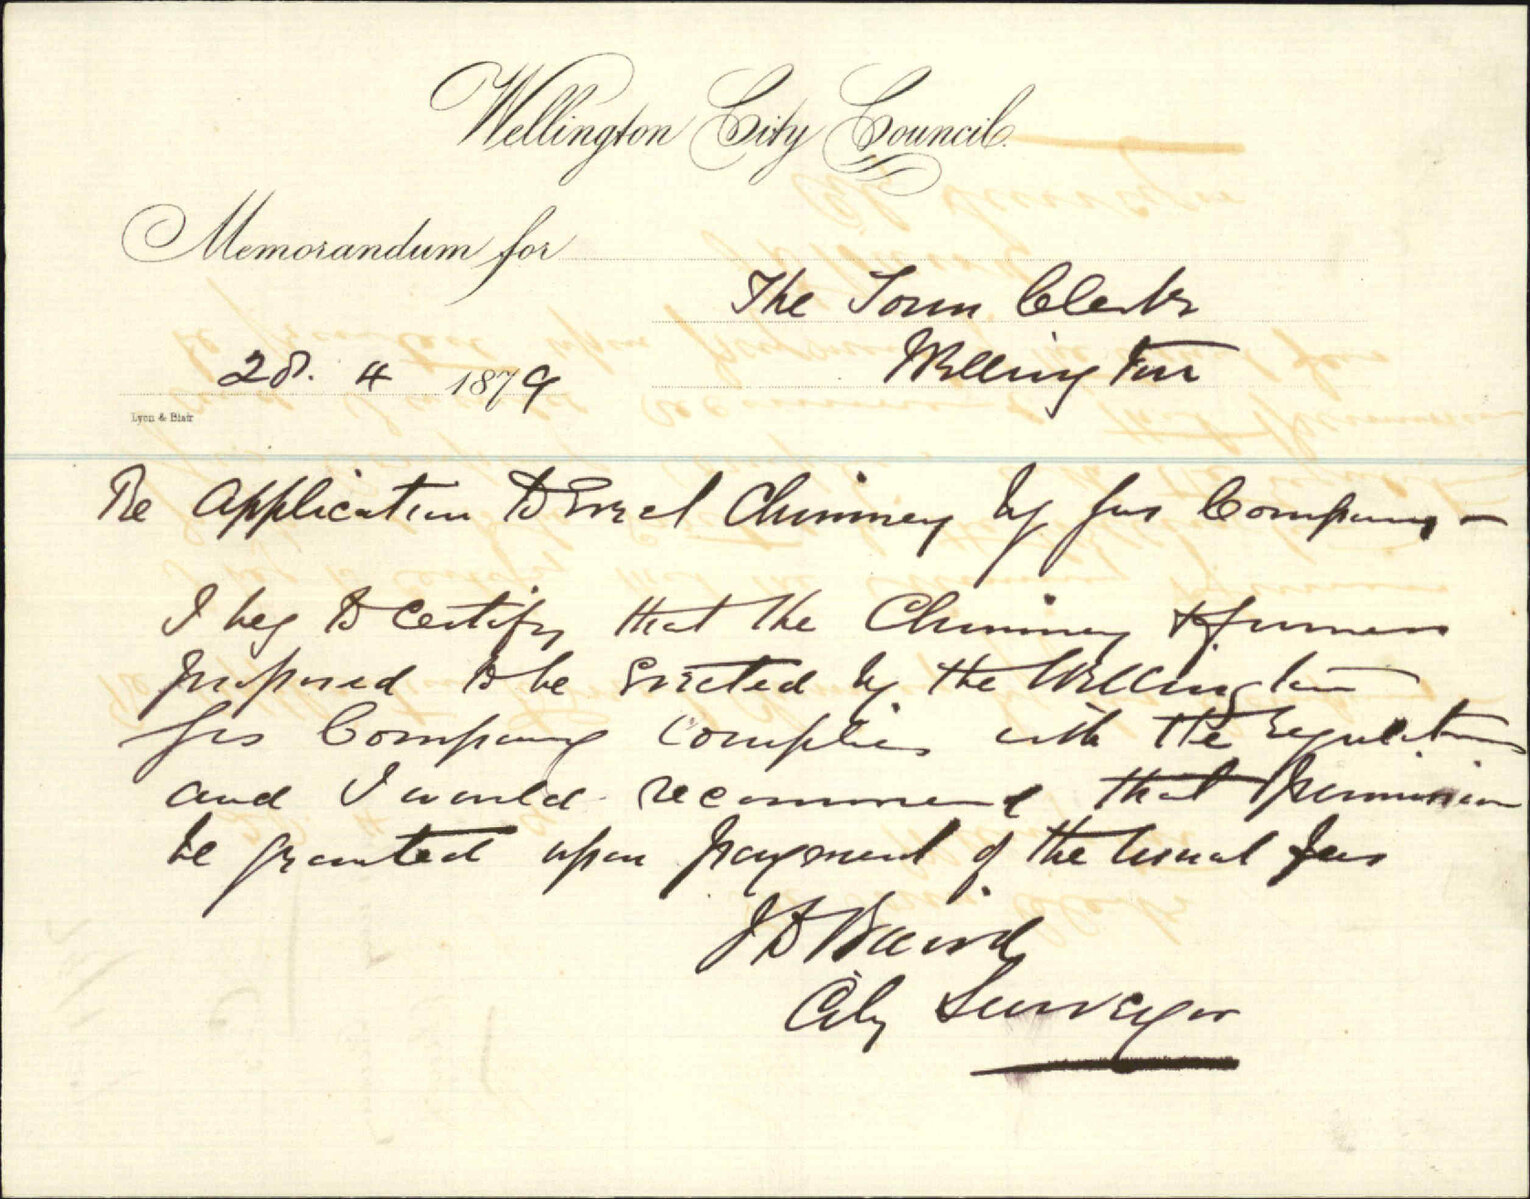 Wellington City Council.
Memorandum for
The Town Clerk
Wellington
28. 4 1879
Lyon & Blair
Re Application to Erect Chimney by Gas Company -
I beg to certify that the Chimney & furnaces
proposed to be Erected by the Wellington
Gas Company complies with the regulations
and I would recommend that permission
be granted upon payment of the usual fees
J D Baird
City Surveyor